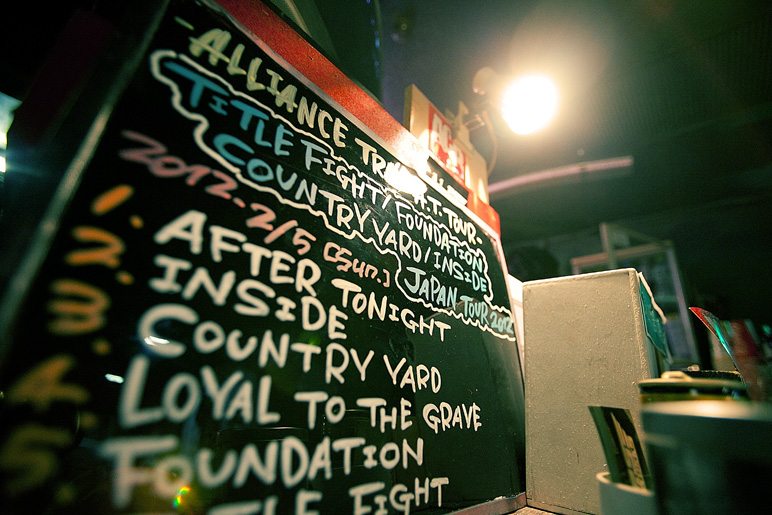 -ALLIANCE
TITLE FIGHT/FOUNDATION
COUNTRY YARD/INSIDE
JAPAN TOUR 2012
2012.2/5 [sun.]
1. AFTER TONIGHT
2. INSIDE
3. COUNTRY YARD
4. LOYAL TO THE GRAVE
5. FOUNDATION
FIGHT